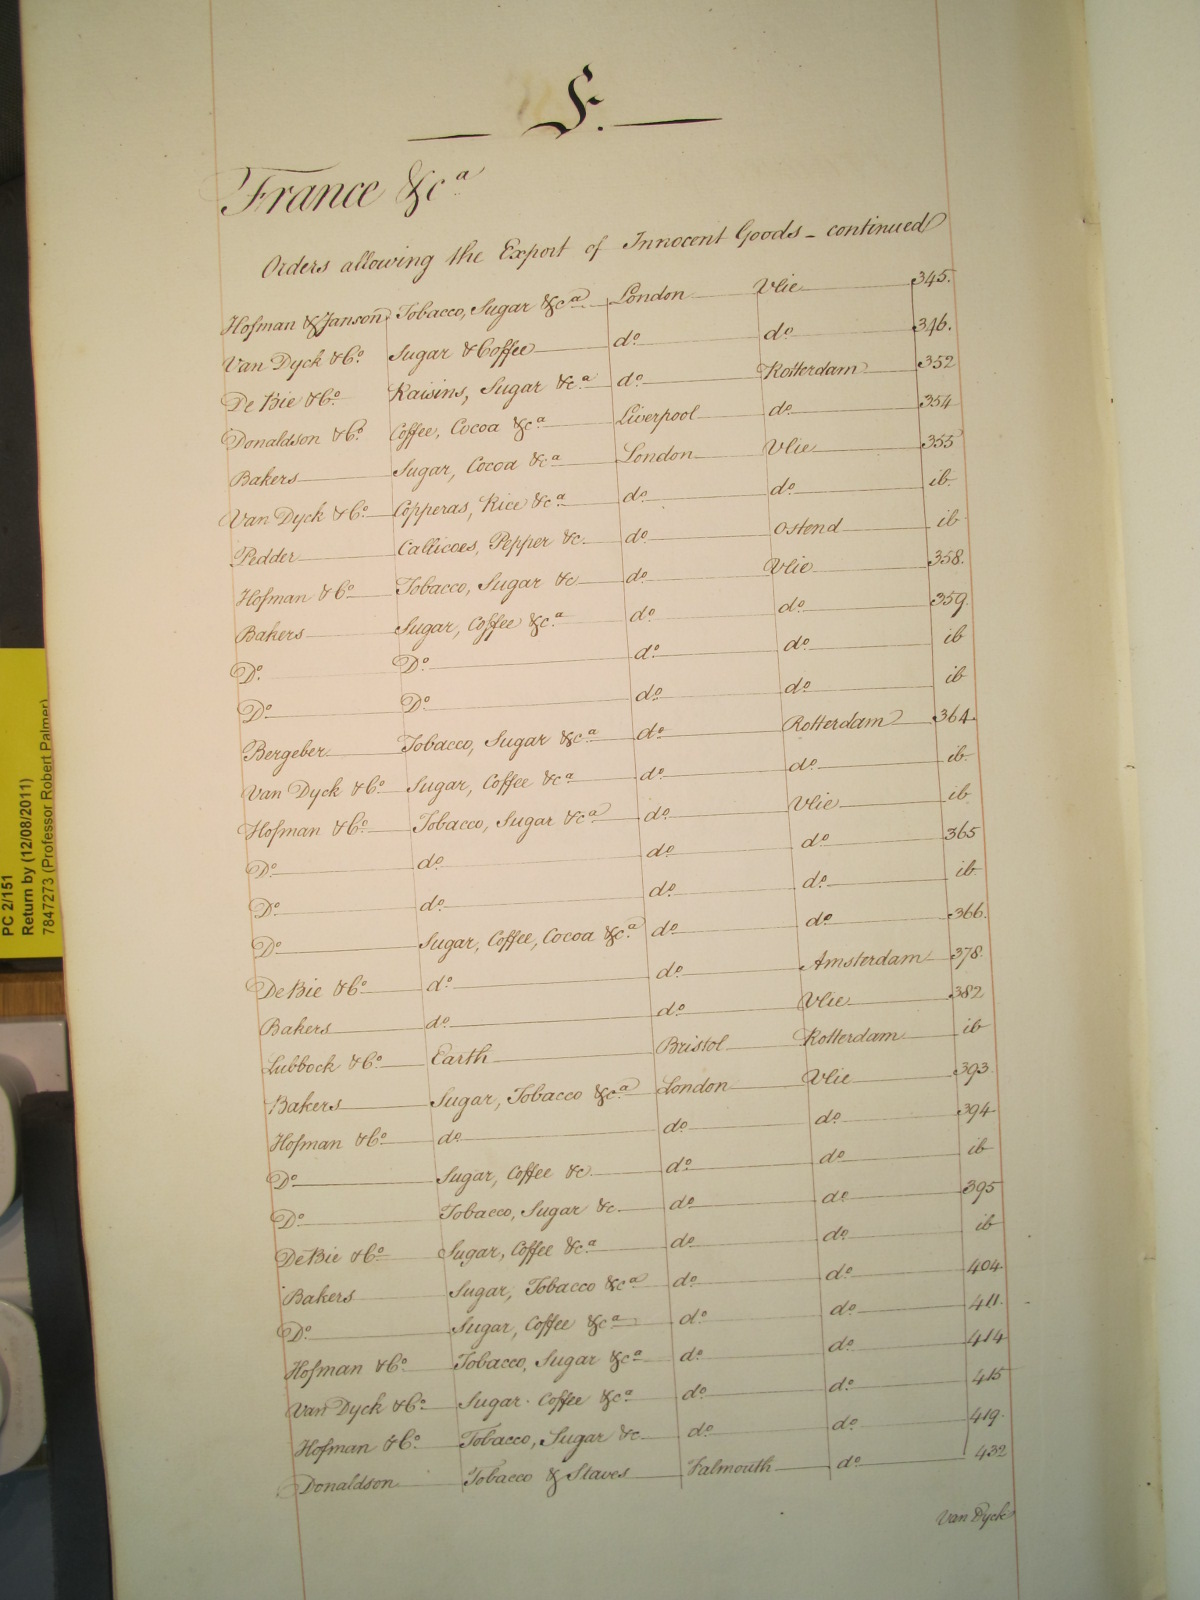 F.
France &c.a
Orders allowing the Export of Innocent Goods - continued
Hofman & Janson Tobacco, Sugar &c.a London Vlie 345.
Van Dyck & Co. Sugar & Coffee do. do. 346.
De Bie & Co. Raisins, Sugar &c.a do. Rotterdam 352
Donaldson & Co. Coffee, Cocoa &c.a Liverpool do. 354
Bakers Sugar, Cocoa &c.a London Vlie 355
Van Dyck & Co. Copperas, Rice &c.a do. do. ib.
Pedder Callicoes, Pepper &c. do. Ostend ib.
Hofman & Co. Tobacco, Sugar &c do. Vlie 358.
Bakers Sugar, Coffee &c.a do. do. 359.
Do. Do. do. do. ib
Do. Do. do. do. ib
Bergeber Tobacco, Sugar &c.a do. Rotterdam 364.
Van Dyck & Co. Sugar, Coffee &c.a do. do. ib.
Hofman & Co. Tobacco, Sugar &c.a do. Vlie ib.
Do. do. do. do. 365
Do. do. do. do. ib
Do. Sugar, Coffee, Cocoa &c.a do. do. 366.
De Bie & Co. do. do. Amsterdam 378.
Bakers do. do. Vlie 382
Lubbock & Co. Earth Bristol Rotterdam ib
Bakers Sugar, Tobacco &c.a London Vlie 393.
Hofman & Co. do. do. do. 394
Do. Sugar, Coffee &c. do. do. ib
Do. Tobacco, Sugar &c. do. do. 395
De Bie & Co. Sugar, Coffee &c.a do. do. ib
Bakers Sugar, Tobacco &c.a do. do. 404.
Do. Sugar, Coffee &c.a do. do. 411.
Hofman & Co. Tobacco, Sugar &c.a do. do. 414
Van Dyck & Co. Sugar. Coffee &c.a do. do. 415
Hofman & Co. Tobacco, Sugar &c do. do. 419.
Donaldson Tobacco & Staves Falmouth do. 432
Van Dyck
PC 2/151
Return by (12/08/2011)
7847273 (Professor Robert Palmer)